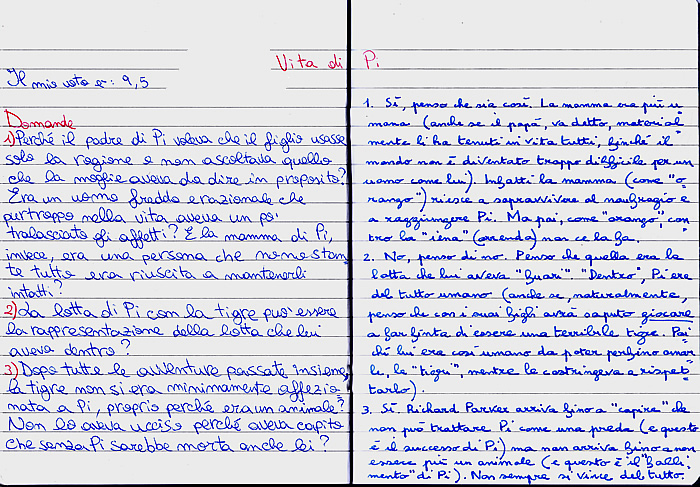 Vita di Pi
Il mio voto è: 9,5
Domande
1) Perché il padre di Pi voleva che il figlio usasse
solo la ragione e non ascoltava quello
che la moglie aveva da dire in proposito?
Era un uomo freddo e razionale che
purtroppo nella vita aveva un po'
tralasciato gli affetti? E la mamma di Pi,
invece, era una persona che nonostan
te tutto era riuscita a mantenerli
intatti?
2) La lotta di Pi con la tigre può essere
la rappresentazione della lotta che lui
aveva dentro?
3) Dopo tutte le avventure passate insieme,
la tigre non si era minimamente affezio
nata a Pi, proprio perché era un animale?
Non lo aveva ucciso perché aveva capito
che senza Pi sarebbe morta anche lei?
1. Sì, penso che sia così. La mamma era più u
mana (anche se il papà, va detto, material
mente li ha tenuti in vita tutti, finché il
mondo non è diventato troppo difficile per un
uomo come lui). Infatti la mamma (come "o
rango") riesce a sopravvivere al naufragio e
a raggiungere Pi. Ma poi, come "orango", con
tro la "iena" (orrenda) non ce la fa.
2. No, penso di no. Penso che quella era la
lotta che lui aveva "fuori". "Dentro", Pi era
del tutto umano (anche se, naturalmente,
penso che con i suoi figli avrà saputo giocare
a far finta di essere una terribile tigre. Poi
ché lui era così umano da poter perfino amar
le, le "tigri", mentre le costringeva a rispet
tarlo).
3. Sì. Richard Parker arriva fino a "capire" che
non può trattare Pi come una preda (e questo
è il successo di Pi) ma non arriva fino a non
essere più un animale (e questo è il "falli
mento" di Pi). Non sempre si vince del tutto.